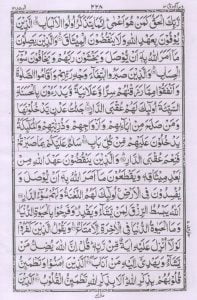 ٢٢٨
رَبِّكَ الْحَقُّ كَمَنْ هُوَ اَعْمٰى ؕ اِنَّمَا يَتَذَكَّرُ اُولُوا الْاَلْبَابِ ۙ الَّذِيْنَ
يُوْفُوْنَ بِعَهْدِ اللّٰهِ وَلَا يَنْقُضُوْنَ الْمِيْثَاقَ ۙ وَالَّذِيْنَ يَصِلُوْنَ
مَاۤ اَمَرَ اللّٰهُ بِهٖۤ اَنْ يُّوْصَلَ وَيَخْشَوْنَ رَبَّهُمْ وَيَخَافُوْنَ سُوْٓءَ
الْحِسَابِ ؕ وَالَّذِيْنَ صَبَرُوا ابْتِغَآءَ وَجْهِ رَبِّهِمْ وَاَقَامُوا الصَّلٰوةَ
وَاَنْفَقُوْا مِمَّا رَزَقْنٰهُمْ سِرًّا وَّعَلَانِيَةً وَّيَدْرَءُوْنَ بِالْحَسَنَةِ
السَّيِّئَةَ اُولٰٓئِكَ لَهُمْ عُقْبَى الدَّارِ ۙ جَنّٰتُ عَدْنٍ يَّدْخُلُوْنَهَا
وَمَنْ صَلَحَ مِنْ اٰبَآئِهِمْ وَاَزْوَاجِهِمْ وَذُرِّيّٰتِهِمْ وَالْمَلٰٓئِكَةُ
يَدْخُلُوْنَ عَلَيْهِمْ مِّنْ كُلِّ بَابٍ ۚ سَلٰمٌ عَلَيْكُمْ بِمَا صَبَرْتُمْ
فَنِعْمَ عُقْبَى الدَّارِ ؕ وَالَّذِيْنَ يَنْقُضُوْنَ عَهْدَ اللّٰهِ مِنْۢ
بَعْدِ مِيْثَاقِهٖ وَيَقْطَعُوْنَ مَاۤ اَمَرَ اللّٰهُ بِهٖۤ اَنْ يُّوْصَلَ وَ
يُفْسِدُوْنَ فِى الْاَرْضِ ۙ اُولٰٓئِكَ لَهُمُ اللَّعْنَةُ وَلَهُمْ سُوْٓءُ الدَّارِ
اَللّٰهُ يَبْسُطُ الرِّزْقَ لِمَنْ يَّشَآءُ وَيَقْدِرُ ؕ وَفَرِحُوْا بِالْحَيٰوةِ الدُّنْيَا
وَمَا الْحَيٰوةُ الدُّنْيَا فِى الْاٰخِرَةِ اِلَّا مَتَاعٌ وَيَقُوْلُ الَّذِيْنَ كَفَرُوْا
لَوْلَاۤ اُنْزِلَ عَلَيْهِ اٰيَةٌ مِّنْ رَّبِّهٖ ؕ قُلْ اِنَّ اللّٰهَ يُضِلُّ مَنْ
يَّشَآءُ وَيَهْدِيْۤ اِلَيْهِ مَنْ اَنَابَ ۚ اَلَّذِيْنَ اٰمَنُوْا وَتَطْمَئِنُّ
قُلُوْبُهُمْ بِذِكْرِ اللّٰهِ ؕ اَلَا بِذِكْرِ اللّٰهِ تَطْمَئِنُّ الْقُلُوْبُ ؕ اَلَّذِيْنَ